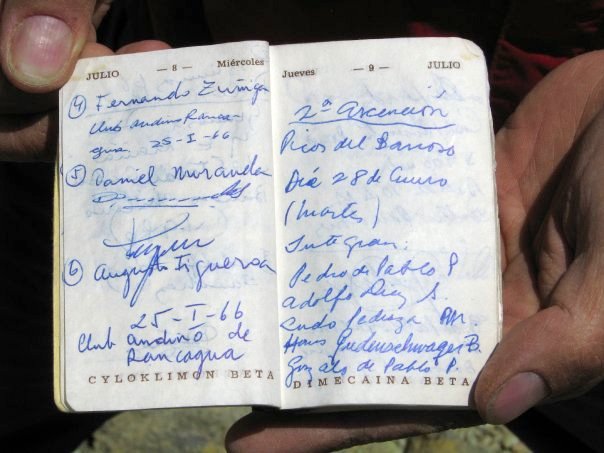 JULIO — 8 — Miércoles
④ Fernando Zuñiga
Club andino Ranca-
gua 25-I-66
⑤ Daniel Miranda
⑥ Augusto Figueroa
25-I-66
Club andino de
Rancagua
CYLOKLIMON BETA
Jueves — 9 — JULIO
2ª ascención
Picos del Barroso
Día 28 de Enero
(Martes)
Integran:
Pedro de Pablo P.
Adolfo Diaz S.
Pedroza M.
Hans B.
Gonzalo de Pablo P.
DIMECAINA BETA